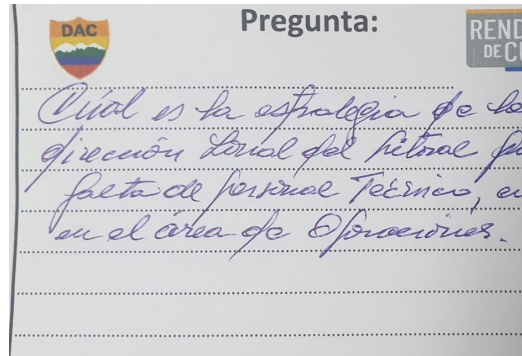 DAC
Pregunta:
REND
DE C
Cúal es la estrategia de la
dirección Zonal del Litoral
falta de personal Técnico, en
en el área de Operaciones.